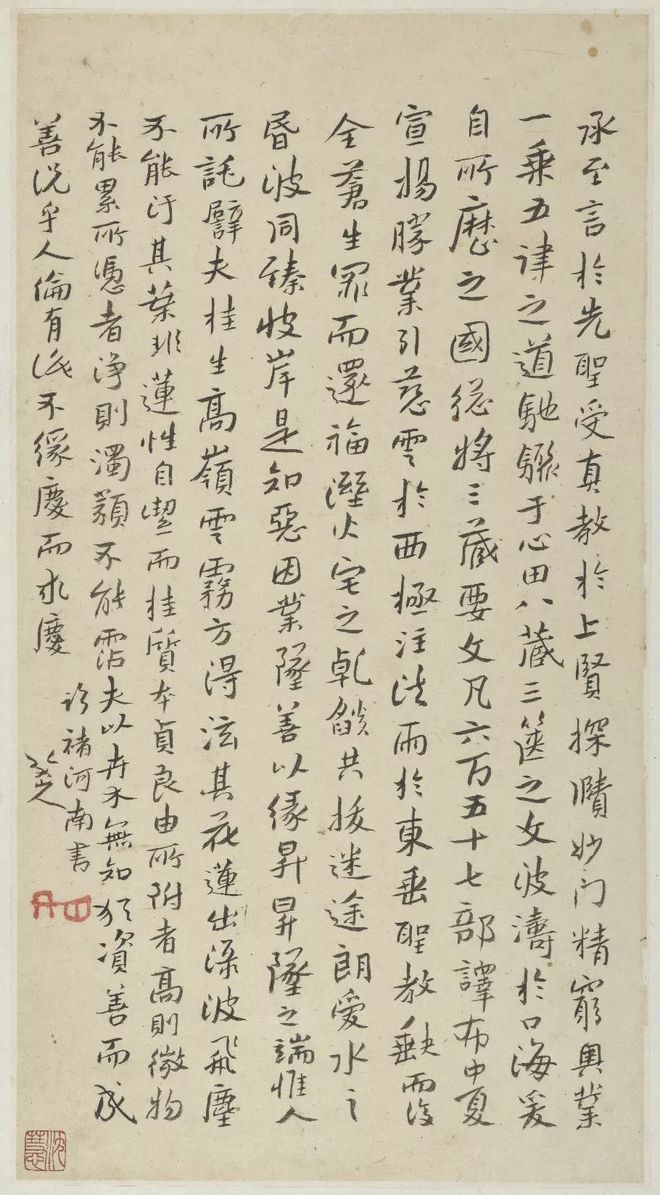 承至言於先聖受真教於上賢探賾妙门精窮奧業
一乘五律之道馳驟于心田八藏三篋之文波濤於口海爰
自所歷之國總將三藏要文凡六百五十七部譯布中夏
宣揚勝業引慈雲於西極注法雨於東垂聖教缺而復
全蒼生罪而還福溼火宅之乾燄共拔迷途朗愛水之
昏波同臻彼岸是知惡因業墜善以緣昇昇墜之端惟人
所託譬夫桂生高嶺雲霧方得泫其花蓮出淥波飛塵
不能汙其葉非蓮性自潔而桂質本貞良由所附者高則微物
不能累所憑者淨則濁類不能霑夫以卉木無知猶資善而成
善況乎人倫有識不緣慶而求慶
臨褚河南書
八大山人